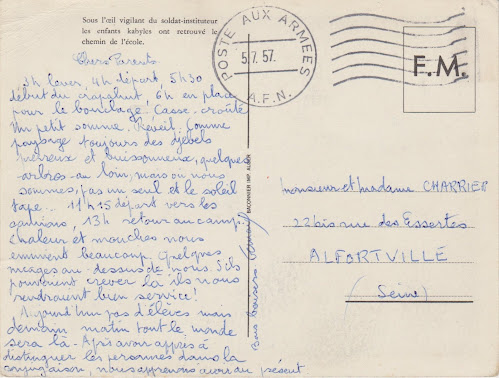 Sous l'œil vigilant du soldat-instituteur
les enfants kabyles ont retrouvé le
chemin de l'école.
POSTE AUX ARMEES
5.7.57.
A.F.N.
F.M.
Chers Parents
3h lever 4h départ 5h30
début du crapahut 6h en place
pour le bouclage! Casse-croûte
Un petit somme. Réveil. Comme
paysage toujours des djebels
pierreux et buissonneux, quelques
arbres au loin, mais où nous
sommes, pas un seul et le soleil
tape. 11h15 départ vers les
camions, 13h retour au camp.
Chaleur et mouches nous
emmment beaucoup. Quelques
nuages au-dessus de nous. S'ils
pouvaient crever là ils nous
rendraient bien service!
Aujourd'hui pas d'élèves mais
demain matin tout le monde
sera là. Après avoir appris à
distinguer les personnes dans la
conjugaison, nous apprenons avoir au présent
Bons baisers
BACONNIER IMP. ALGER
Monsieur et Madame CHARRIER
22bis rue des Essertes
ALFORTVILLE
(Seine)